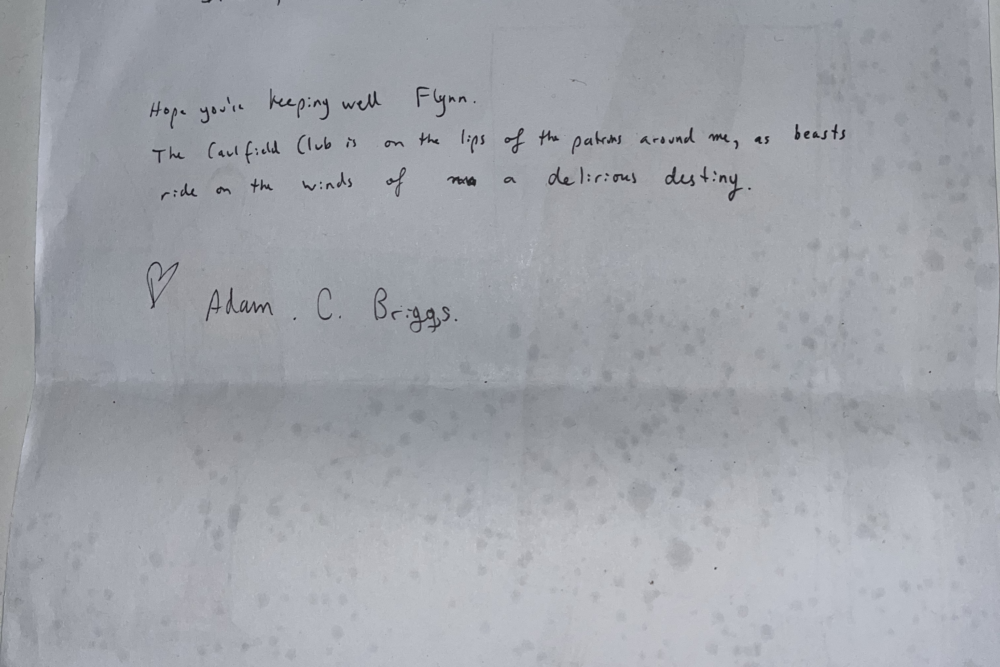 Hope you're keeping well Flynn.
The Caulfield Club is on the lips of the patrons around me, as beasts
ride on the winds of a delirious destiny.
♡ Adam. C. Briggs.